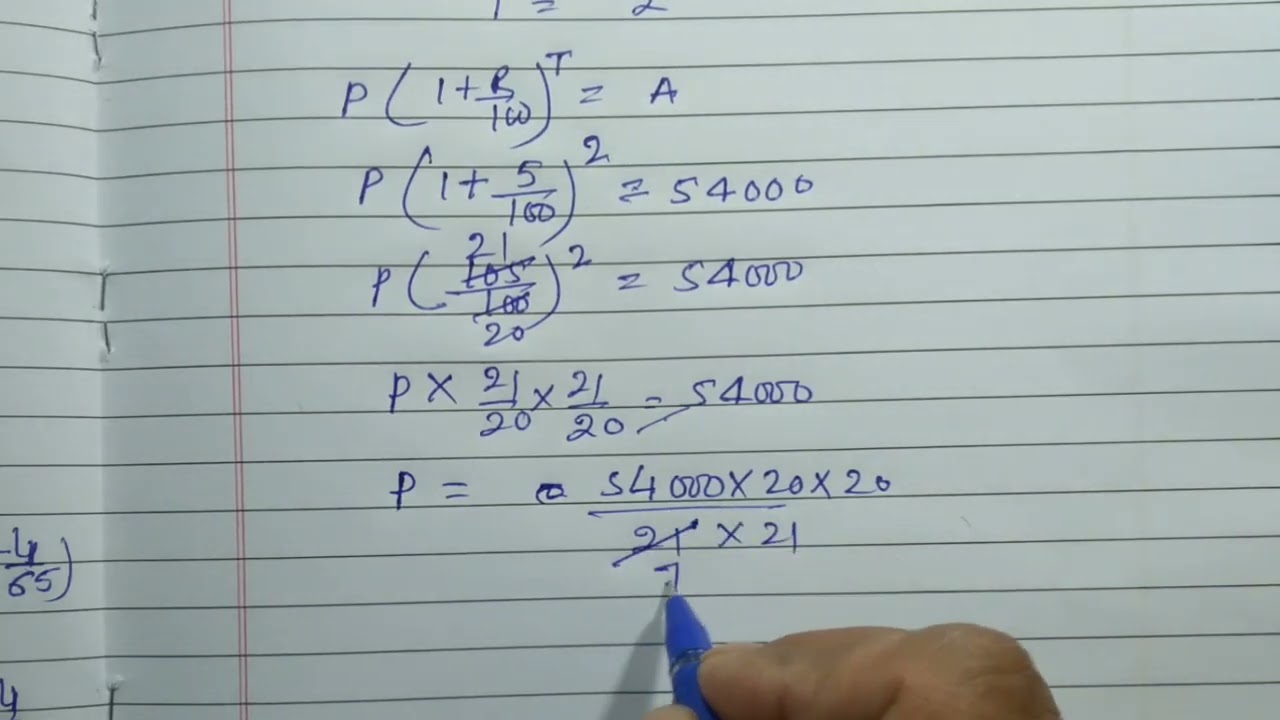 T = 2
P(1+R/100)^T = A
P(1+5/100)^2 = 54000
21
P(105/100)^2 = 54000
20
P × 21/20 × 21/20 = 54000
P = 54000×20×20
21 × 21
7
-4/65)
4